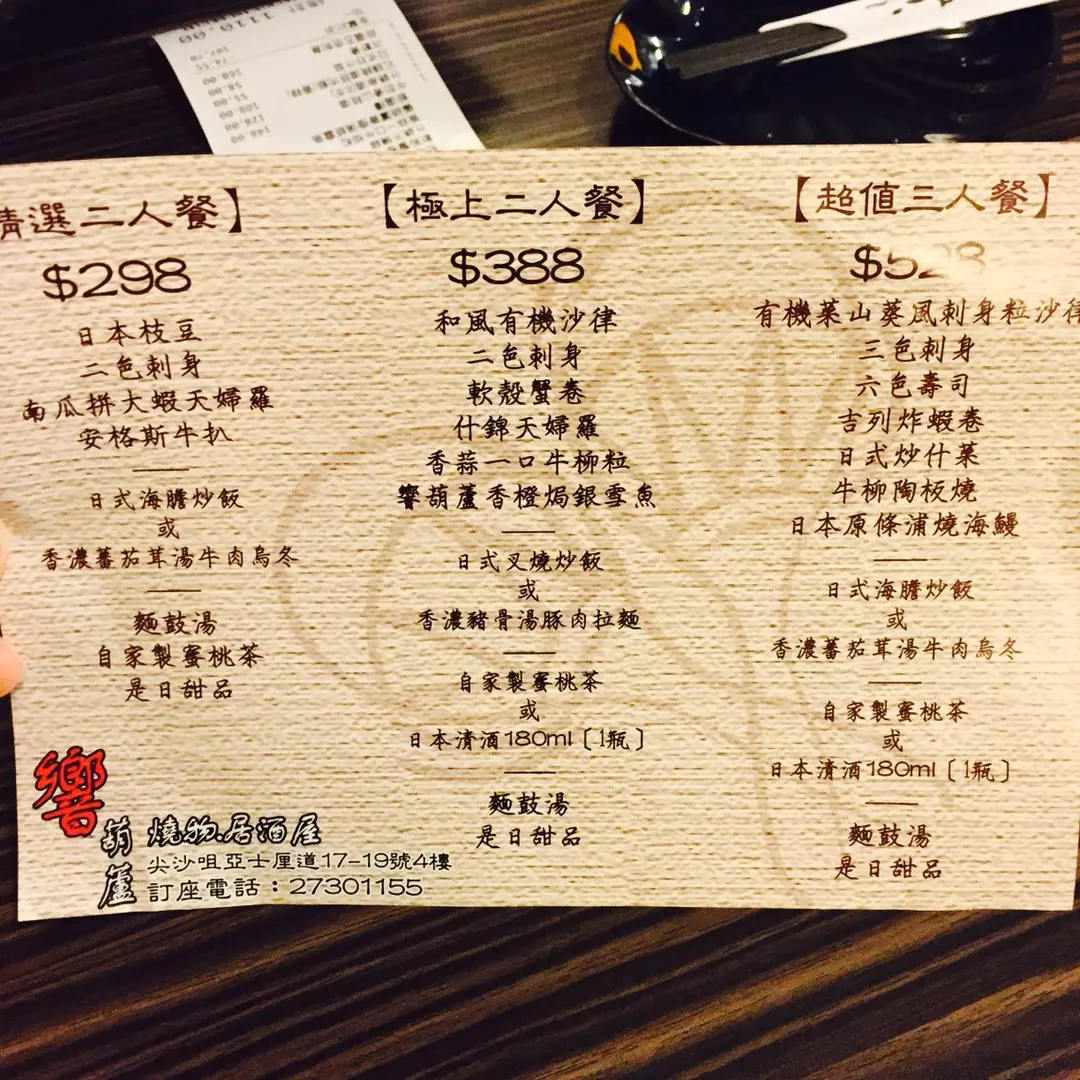 精選二人餐】
$298
日本枝豆
二色刺身
南瓜拼大蝦天婦羅
安格斯牛扒
日式海膽炒飯
或
香濃蕃茄茸湯牛肉烏冬
麵鼓湯
自家製蜜桃茶
是日甜品
【極上二人餐】
$388
和風有機沙律
二色刺身
軟殼蟹卷
什錦天婦羅
香蒜一口牛柳粒
響葫蘆香橙焗銀雪魚
日式叉燒炒飯
或
香濃豬骨湯豚肉拉麵
自家製蜜桃茶
或
日本清酒180ml〔1瓶〕
麵鼓湯
是日甜品
【超值三人餐】
$528
有機菜山葵風刺身粒沙律
三色刺身
六色壽司
吉列炸蝦卷
日式炒什菜
牛柳陶板燒
日本原條浦燒海鰻
日式海膽炒飯
或
香濃蕃茄茸湯牛肉烏冬
自家製蜜桃茶
或
日本清酒180ml〔1瓶〕
麵鼓湯
是日甜品
響葫蘆 燒物.居酒屋
尖沙咀亞士厘道17-19號4樓
訂座電話：27301155